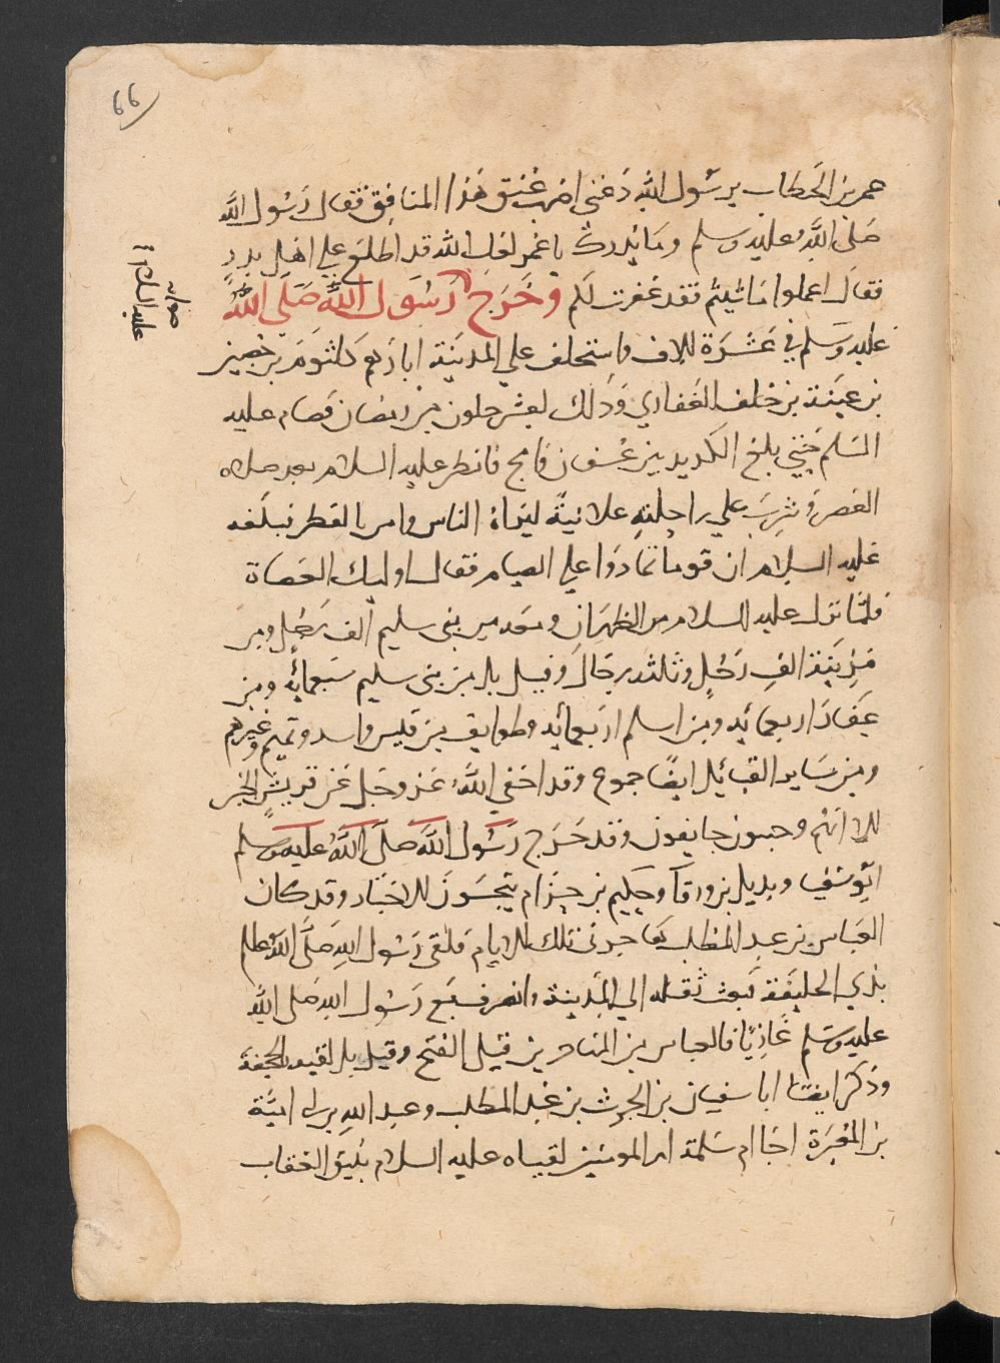 ٦٦
عمر بن الخطاب يرسول الله دعنى اضرب عنق هذا المنافق فقال رسول الله
صلى الله عليه وسلم وما يدريك يا عمر لعل الله قد اطلع على اهل بدر
فقال اعملوا ما شيتم فقد غفرت لكم وخرج رسول الله صلى الله
عليه وسلم في عشرة الاف واستخلف علي المدينة ابا رهم كلثوم بن حصين
بن عيينة بن خلف الغفاري وذلك لعشر خلون من رمضان فصام عليه
السلم حتى بلغ الكديد بين عسفان وامج فافطر عليه السلام بعد صلاه
العصر وشرب علي راحلته علانية ليراه الناس وامر بالفطر فبلغه
عليه السلام ان قوما تمادوا على الصيام فقال اوليك العصاة
فلما نزل عليه السلام مر الظهران ومعه من بنى سليم الف رجل ومن
مزينة الف رجل وثلثه رجال وقيل بل من بنى سليم سبعمائه ومن
غفار اربعمائه ومن اسلم اربعمائه وطوايف من قيس واسد وتميم وغيرهم
ومن ساير القبائل ايضا جموع وقد اخفي الله عز وجل عن قريش الخبر
الا انهم وجسون خايفون وقد خرج رسول الله صلى الله عليه وسلم
ابو سفين وبديل بن ورقا وحكيم بن حزام يتجسسون الاخبار وقد كان
العباس بن عبد المطلب هاجر فى تلك الايام فلقى رسول الله صلى الله علم
بذي الحليفة فبعث ثقله الي المدينة وانصرف مع رسول الله صلى الله
عليه وسلم غازيا فالعباس من المهاجرين قبل الفتح وقيل بل لقيه بالجحفة
وذكر ايضا ابا سفيان بن الحرث بن عبد المطلب وعبد الله بن ابى امية
بن المغيرة اخا ام سلمة ام المومنين لقياه عليه السلام بنيق العقاب
صوابه
عليه السلام